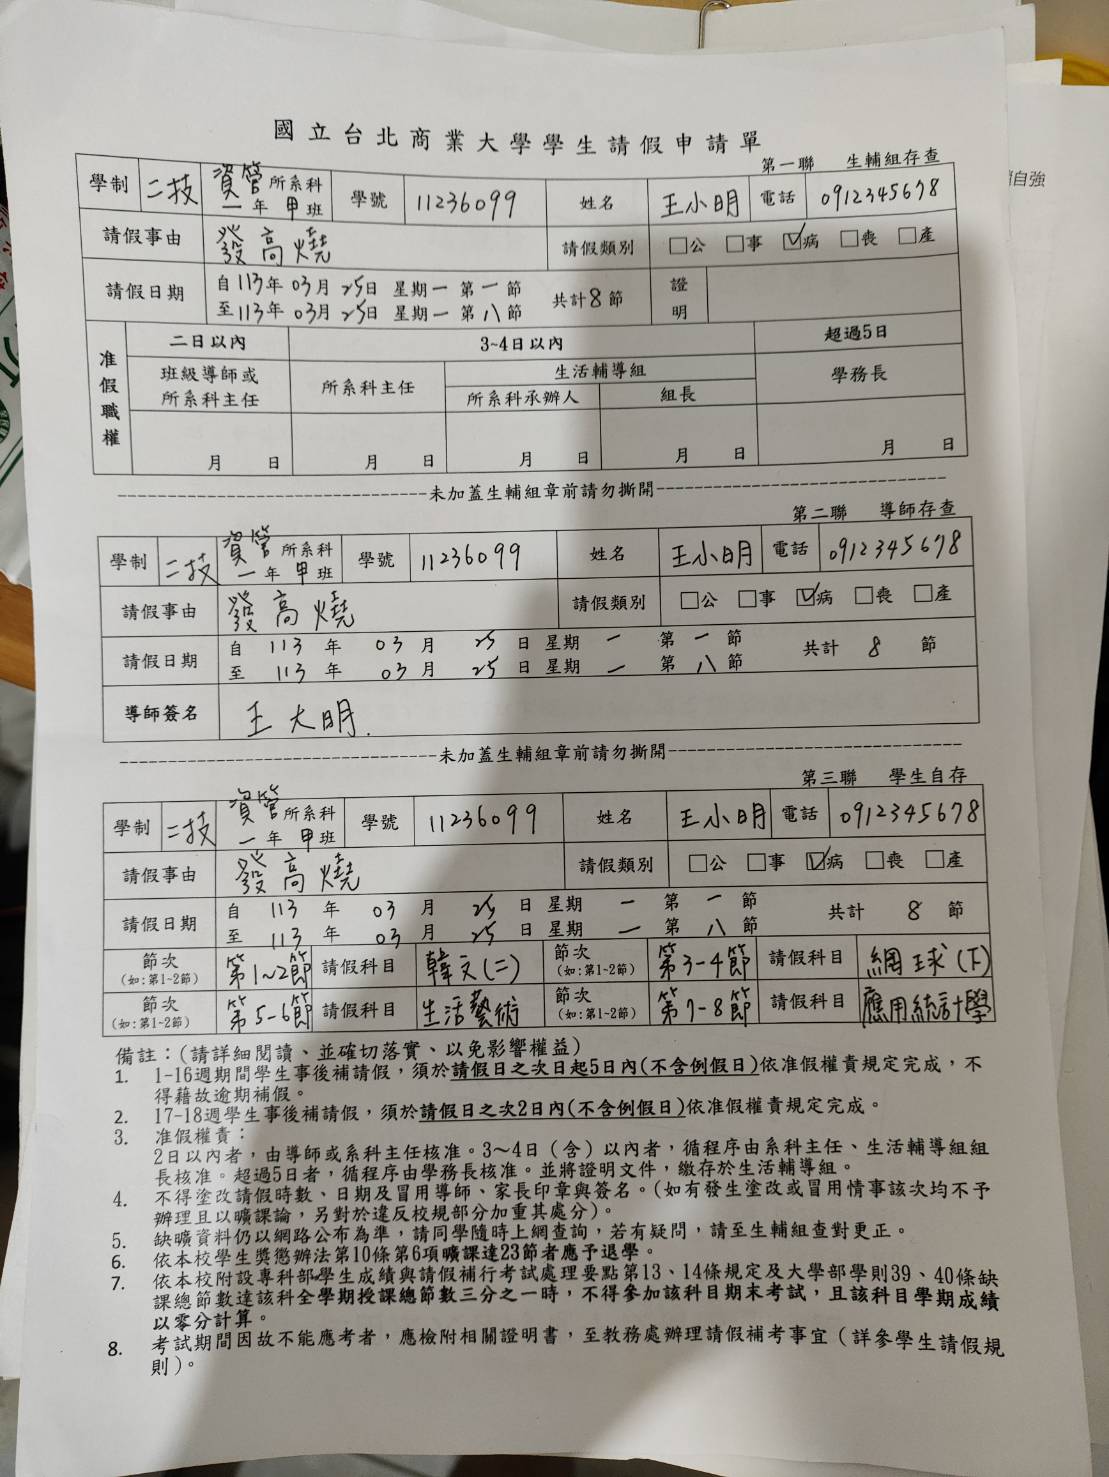 國立台北商業大學學生請假申請單
第一聯 生輔組存查
學制 二技 資管所系科 一年甲班 學號 11236099 姓名 王小明 電話 0912345678
請假事由 發高燒 請假類別 □公 □事 ☑病 □喪 □產
請假日期 自113年03月25日 星期一 第一節 共計8節 證明
至113年03月25日 星期一 第八節
准假職權 二日以內 3~4日以內 超過5日
班級導師或所系科主任 所系科主任 生活輔導組 學務長
所系科承辦人 組長
月 日 月 日 月 日 月 日 月 日
未加蓋生輔組章前請勿撕開
第二聯 導師存查
學制 二技 資管所系科 一年甲班 學號 11236099 姓名 王小明 電話 0912345678
請假事由 發高燒 請假類別 □公 □事 ☑病 □喪 □產
請假日期 自 113 年 03 月 25 日 星期 一 第 一 節 共計 8 節
至 113 年 03 月 25 日 星期 一 第 八 節
導師簽名 王大明.
未加蓋生輔組章前請勿撕開
第三聯 學生自存
學制 二技 資管所系科 一年甲班 學號 11236099 姓名 王小明 電話 0912345678
請假事由 發高燒 請假類別 □公 □事 ☑病 □喪 □產
請假日期 自 113 年 03 月 25 日 星期 一 第 一 節 共計 8 節
至 113 年 03 月 25 日 星期 一 第 八 節
節次 (如:第1~2節) 第1~2節 請假科目 韓文(二) 節次 (如:第1~2節) 第3-4節 請假科目 網球(下)
節次 (如:第1~2節) 第5-6節 請假科目 生活藝術 節次 (如:第1~2節) 第7-8節 請假科目 應用統計學
備註：(請詳細閱讀、並確切落實、以免影響權益)
1. 1-16週期間學生事後補請假，須於請假日之次日起5日內(不含例假日)依准假權責規定完成，不
得藉故逾期補假。
2. 17-18週學生事後補請假，須於請假日之次2日內(不含例假日)依准假權責規定完成。
3. 准假權責：
2日以內者，由導師或系科主任核准。3～4日（含）以內者，循程序由系科主任、生活輔導組組
長核准。超過5日者，循程序由學務長核准。並將證明文件，繳存於生活輔導組。
4. 不得塗改請假時數、日期及冒用導師、家長印章與簽名。(如有發生塗改或冒用情事該次均不予
辦理且以曠課論，另對於違反校規部分加重其處分)。
5. 缺曠資料仍以網路公布為準，請同學隨時上網查詢，若有疑問，請至生輔組查對更正。
6. 依本校學生獎懲辦法第10條第6項曠課達23節者應予退學。
7. 依本校附設專科部學生成績與請假補行考試處理要點第13、14條規定及大學部學則39、40條缺
課總節數達該科全學期授課總節數三分之一時，不得參加該科目期末考試，且該科目學期成績
以零分計算。
8. 考試期間因故不能應考者，應檢附相關證明書，至教務處辦理請假補考事宜（詳參學生請假規
則）。
自強